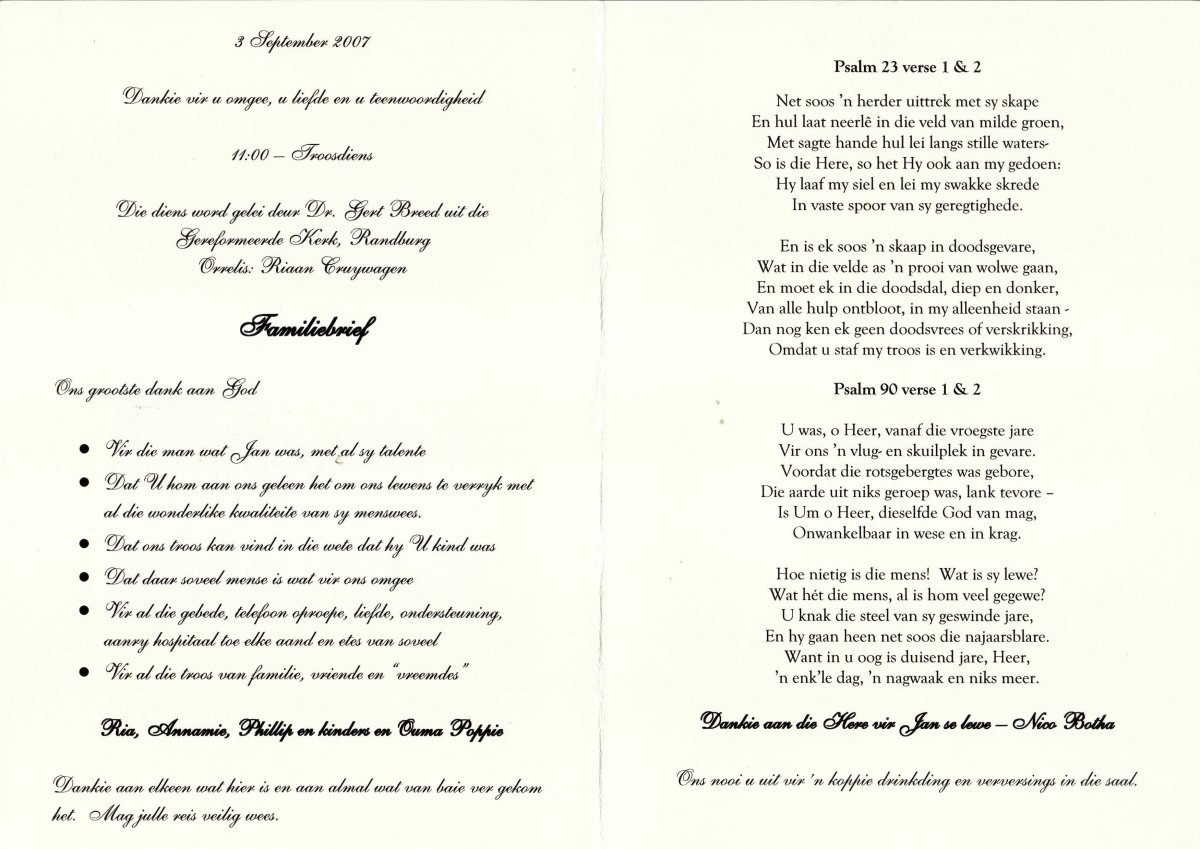 3 September 2007
Dankie vir u omgee, u liefde en u teenwoordigheid
11:00 – Troosdiens
Die diens word gelei deur Dr. Gert Breed uit die
Gereformeerde Kerk, Randburg
Orrelis: Riaan Cruywagen
Familiebrief
Ons grootste dank aan God
● Vir die man wat Jan was, met al sy talente
● Dat U hom aan ons geleen het om ons lewens te verryk met
al die wonderlike kwaliteite van sy menswees.
● Dat ons troos kan vind in die wete dat hy U kind was
● Dat daar soveel mense is wat vir ons omgee
● Vir al die gebede, telefoon oproepe, liefde, ondersteuning,
aanry hospitaal toe elke aand en etes van soveel
● Vir al die troos van familie, vriende en “vreemdes”
Ria, Annamie, Phillip en kinders en Ouma Poppie
Dankie aan elkeen wat hier is en aan almal wat van baie ver gekom
het. Mag julle reis veilig wees.
Psalm 23 verse 1 & 2
Net soos ’n herder uittrek met sy skape
En hul laat neerlê in die veld van milde groen,
Met sagte hande hul lei langs stille waters-
So is die Here, so het Hy ook aan my gedoen:
Hy laaf my siel en lei my swakke skrede
In vaste spoor van sy geregtighede.
En is ek soos ’n skaap in doodsgevare,
Wat in die velde as ’n prooi van wolwe gaan,
En moet ek in die doodsdal, diep en donker,
Van alle hulp ontbloot, in my alleenheid staan -
Dan nog ken ek geen doodsvrees of verskrikking,
Omdat u staf my troos is en verkwikking.
Psalm 90 verse 1 & 2
U was, o Heer, vanaf die vroegste jare
Vir ons ’n vlug- en skuilplek in gevare.
Voordat die rotsgebergtes was gebore,
Die aarde uit niks geroep was, lank tevore –
Is Um o Heer, dieselfde God van mag,
Onwankelbaar in wese en in krag.
Hoe nietig is die mens! Wat is sy lewe?
Wat hét die mens, al is hom veel gegewe?
U knak die steel van sy geswinde jare,
En hy gaan heen net soos die najaarsblare.
Want in u oog is duisend jare, Heer,
’n enk’le dag, ’n nagwaak en niks meer.
Dankie aan die Here vir Jan se lewe – Nico Botha
Ons nooi u uit vir ’n koppie drinkding en verversings in die saal.